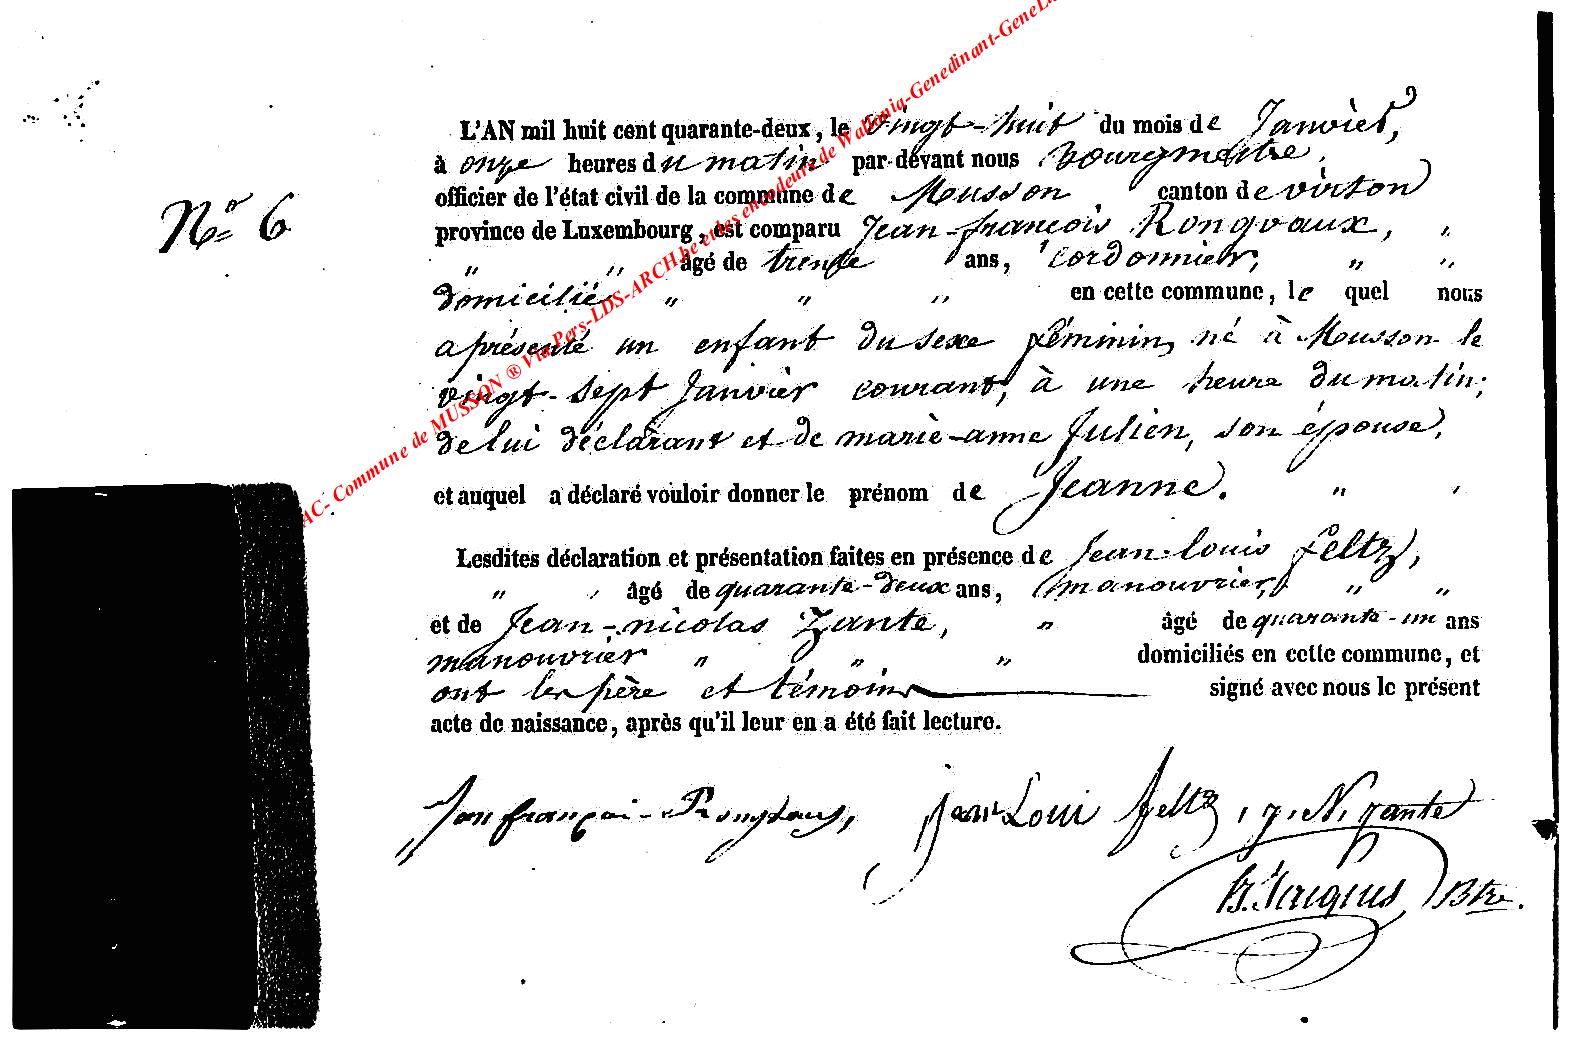 L'AN mil huit cent quarante-deux, le vingt-huit du mois de Janvier,
à onze heures du matin par devant nous Bourgmestre,
officier de l'état civil de la commune de Musson canton de virton
Nº 6
province de Luxembourg, est comparu Jean-françois Rongvaux, "
" " âgé de trente ans, cordonnier, " "
domicilié " " " en cette commune, le quel nous
a présenté un enfant du sexe féminin, né à Musson le
vingt-sept Janvier courant, à une heure du matin;
de lui déclarant et de marie-anne Julien, son épouse,
et auquel a déclaré vouloir donner le prénom de Jeanne. " '
Lesdites déclaration et présentation faites en présence de Jean-louis feltz,
" , âgé de quarante-deux ans, manouvrier, " "
et de Jean-nicolas Zante, " âgé de quarante-un ans
manouvrier " " " domiciliés en cette commune, et
ont les père et témoins signé avec nous le présent
acte de naissance, après qu'il leur en a été fait lecture.
Jean Loui feltz, j. N. zante
Jacques Btre.
AC- Commune de MUSSON ® Via Pers-LDS-ARCH.be et des encodeurs de Wallonia-Genedinant-GeneL